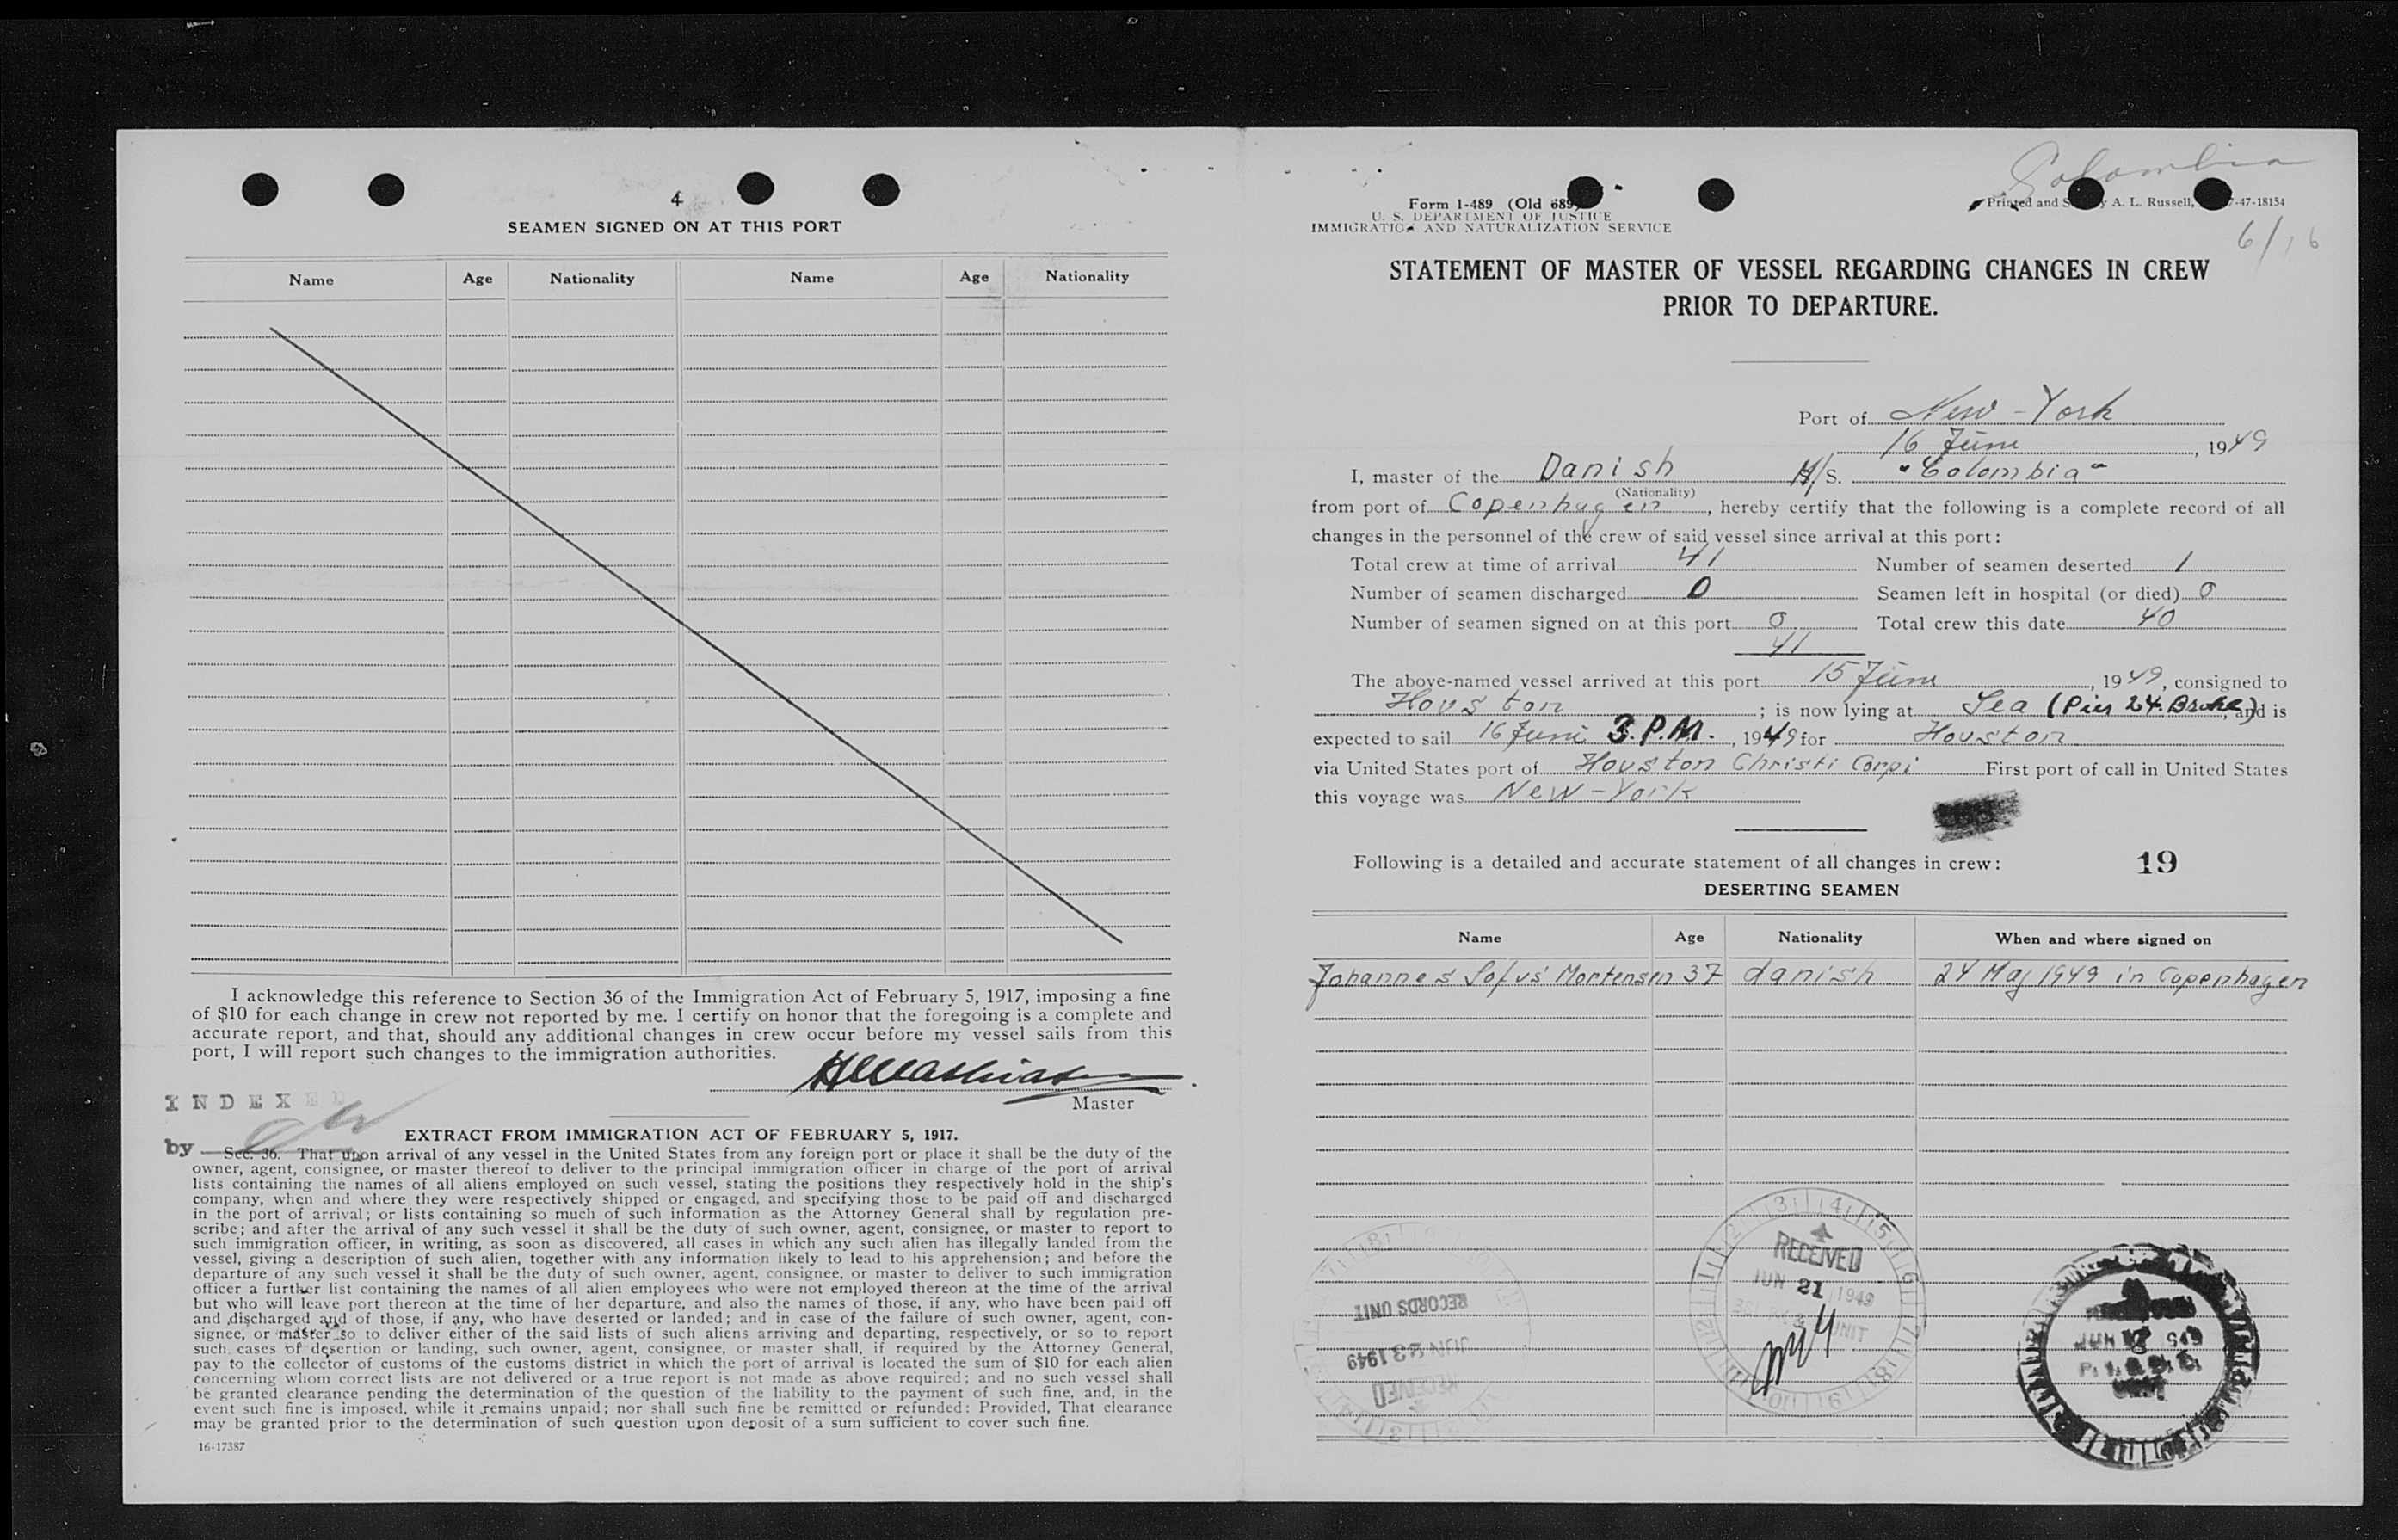 4
SEAMEN SIGNED ON AT THIS PORT
Name Age Nationality Name Age Nationality
I acknowledge this reference to Section 36 of the Immigration Act of February 5, 1917, imposing a fine
of $10 for each change in crew not reported by me. I certify on honor that the foregoing is a complete and
accurate report, and that, should any additional changes in crew occur before my vessel sails from this
port, I will report such changes to the immigration authorities.
Master
INDEXED
by
EXTRACT FROM IMMIGRATION ACT OF FEBRUARY 5, 1917.
Sec. 36. That upon arrival of any vessel in the United States from any foreign port or place it shall be the duty of the
owner, agent, consignee, or master thereof to deliver to the principal immigration officer in charge of the port of arrival
lists containing the names of all aliens employed on such vessel, stating the positions they respectively hold in the ship's
company, when and where they were respectively shipped or engaged, and specifying those to be paid off and discharged
in the port of arrival; or lists containing so much of such information as the Attorney General shall by regulation pre-
scribe; and after the arrival of any such vessel it shall be the duty of such owner, agent, consignee, or master to report to
such immigration officer, in writing, as soon as discovered, all cases in which any such alien has illegally landed from the
vessel, giving a description of such alien, together with any information likely to lead to his apprehension; and before the
departure of any such vessel it shall be the duty of such owner, agent, consignee, or master to deliver to such immigration
officer a further list containing the names of all alien employees who were not employed thereon at the time of the arrival
but who will leave port thereon at the time of her departure, and also the names of those, if any, who have been paid off
and discharged and of those, if any, who have deserted or landed; and in case of the failure of such owner, agent, con-
signee, or master so to deliver either of the said lists of such aliens arriving and departing, respectively, or so to report
such cases of desertion or landing, such owner, agent, consignee, or master shall, if required by the Attorney General,
pay to the collector of customs of the customs district in which the port of arrival is located the sum of $10 for each alien
concerning whom correct lists are not delivered or a true report is not made as above required; and no such vessel shall
be granted clearance pending the determination of the question of the liability to the payment of such fine, and, in the
event such fine is imposed, while it remains unpaid; nor shall such fine be remitted or refunded: Provided, That clearance
may be granted prior to the determination of such question upon deposit of a sum sufficient to cover such fine.
16-17387
Colombia
Form 1-489 (Old 689)
U. S. DEPARTMENT OF JUSTICE
IMMIGRATION AND NATURALIZATION SERVICE
Printed and A. L. Russell, 7-47-18154
6/16
STATEMENT OF MASTER OF VESSEL REGARDING CHANGES IN CREW
PRIOR TO DEPARTURE.
Port of New-York
16 Juni, 1949
I, master of the Danish M/S. "Colombia"
(Nationality)
from port of Copenhagen, hereby certify that the following is a complete record of all
changes in the personnel of the crew of said vessel since arrival at this port:
Total crew at time of arrival 41 Number of seamen deserted 1
Number of seamen discharged 0 Seamen left in hospital (or died) 0
Number of seamen signed on at this port 0 Total crew this date 40
41
The above-named vessel arrived at this port 15 Juni, 1949, consigned to
Houston; is now lying at Sea (Pier 24. Brokl), and is
expected to sail 16 Juni 3. P.M., 1949 for Houston
via United States port of Houston Christi Corpi First port of call in United States
this voyage was New-York
Following is a detailed and accurate statement of all changes in crew: 19
DESERTING SEAMEN
Name Age Nationality When and where signed on
Johannes Sofus Mortensen 37 danish 24 Maj 1949 in Copenhagen
RECEIVED
JUN 21 1949
UNIT
RECORDS UNIT
JUN 23 1949
RECEIVED